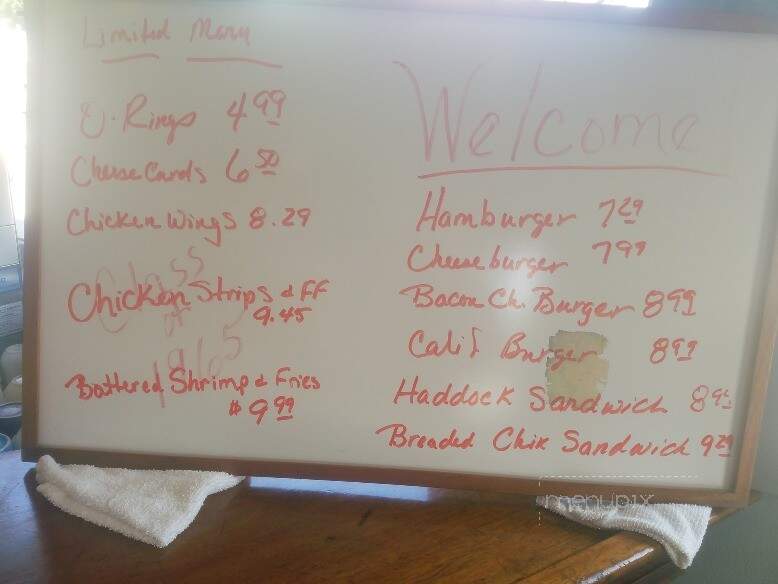 Limited Menu
O. Rings 4 99
Cheese Curds 6 50
Chicken Wings 8.29
Chicken Strips & FF
9.45
Battered Shrimp & Fries
$ 9 99
Welcome
Hamburger 7 29
Cheeseburger 7 99
Bacon Ch. Burger 8 99
Calif Burger 8 99
Haddock Sandwich
Breaded Chix Sandwich 9 29
menupix